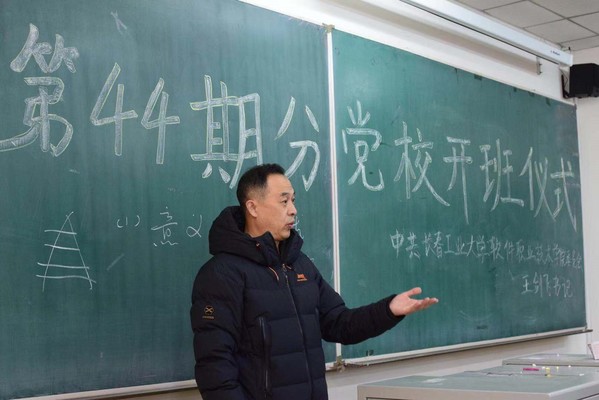 第44期分党校开班仪式
(1) 意义
中共长春工业大学软件职业技术学院委员会
王剑飞书记